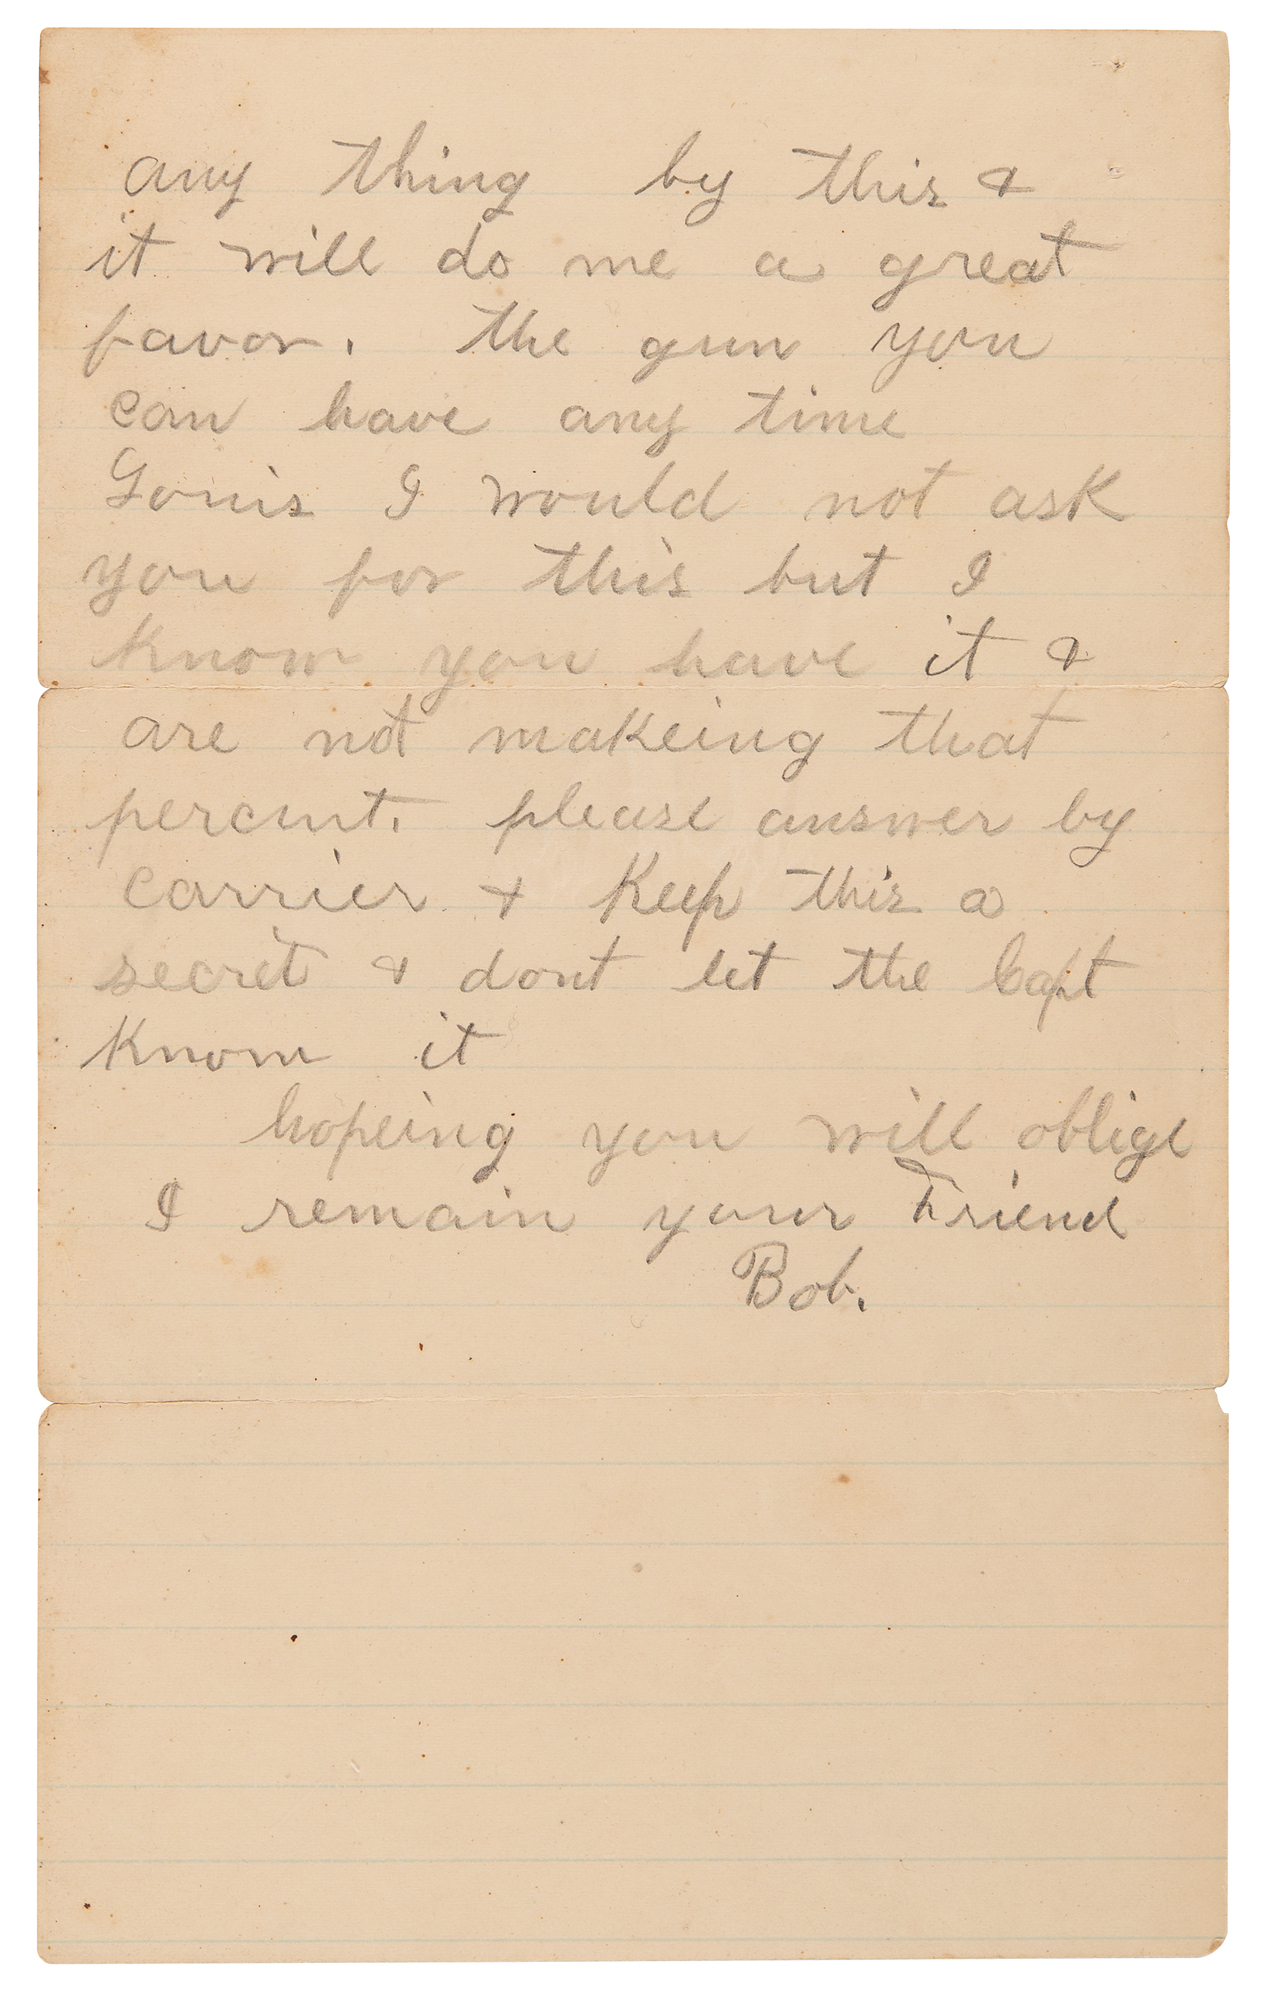 any thing by this &
it will do me a great
favor. the gun you
can have any time
Louis I would not ask
you for this but I
know you have it &
are not makeing that
percent. please answer by
carrier & Keep this a
secret & dont let the Capt
Know it
hopeing you will oblige
I remain your Friend
Bob.